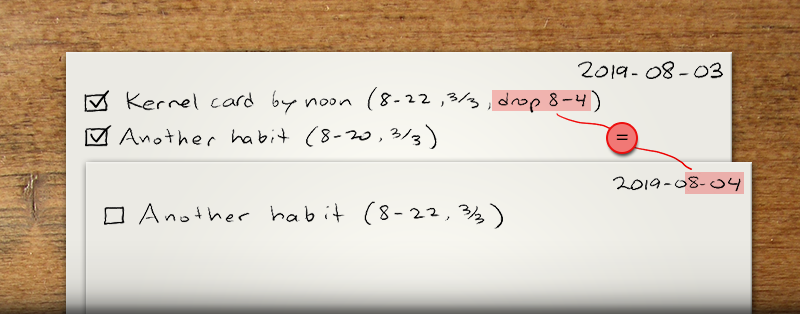 2019-08-03
Kernel card by noon (8-22, 3/3, drop 8-4)
Another habit (8-20, 3/3)
=
2019-08-04
Another habit (8-22, 3/3)